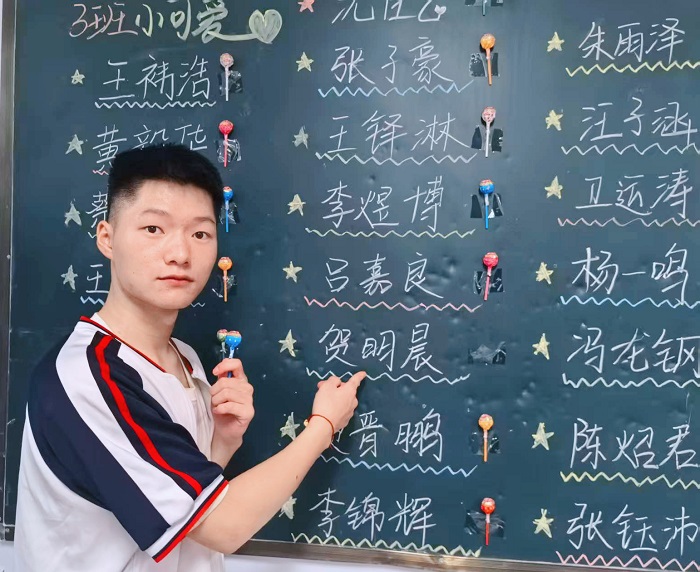 3班小可爱
王祎浩
黄毅
王
沈
张子豪
王铎淋
李煜博
吕嘉良
贺明晨
晋鹏
李锦辉
朱雨泽
汪子涵
卫运涛
杨一鸣
冯龙钢
陈炤君
张钰沐